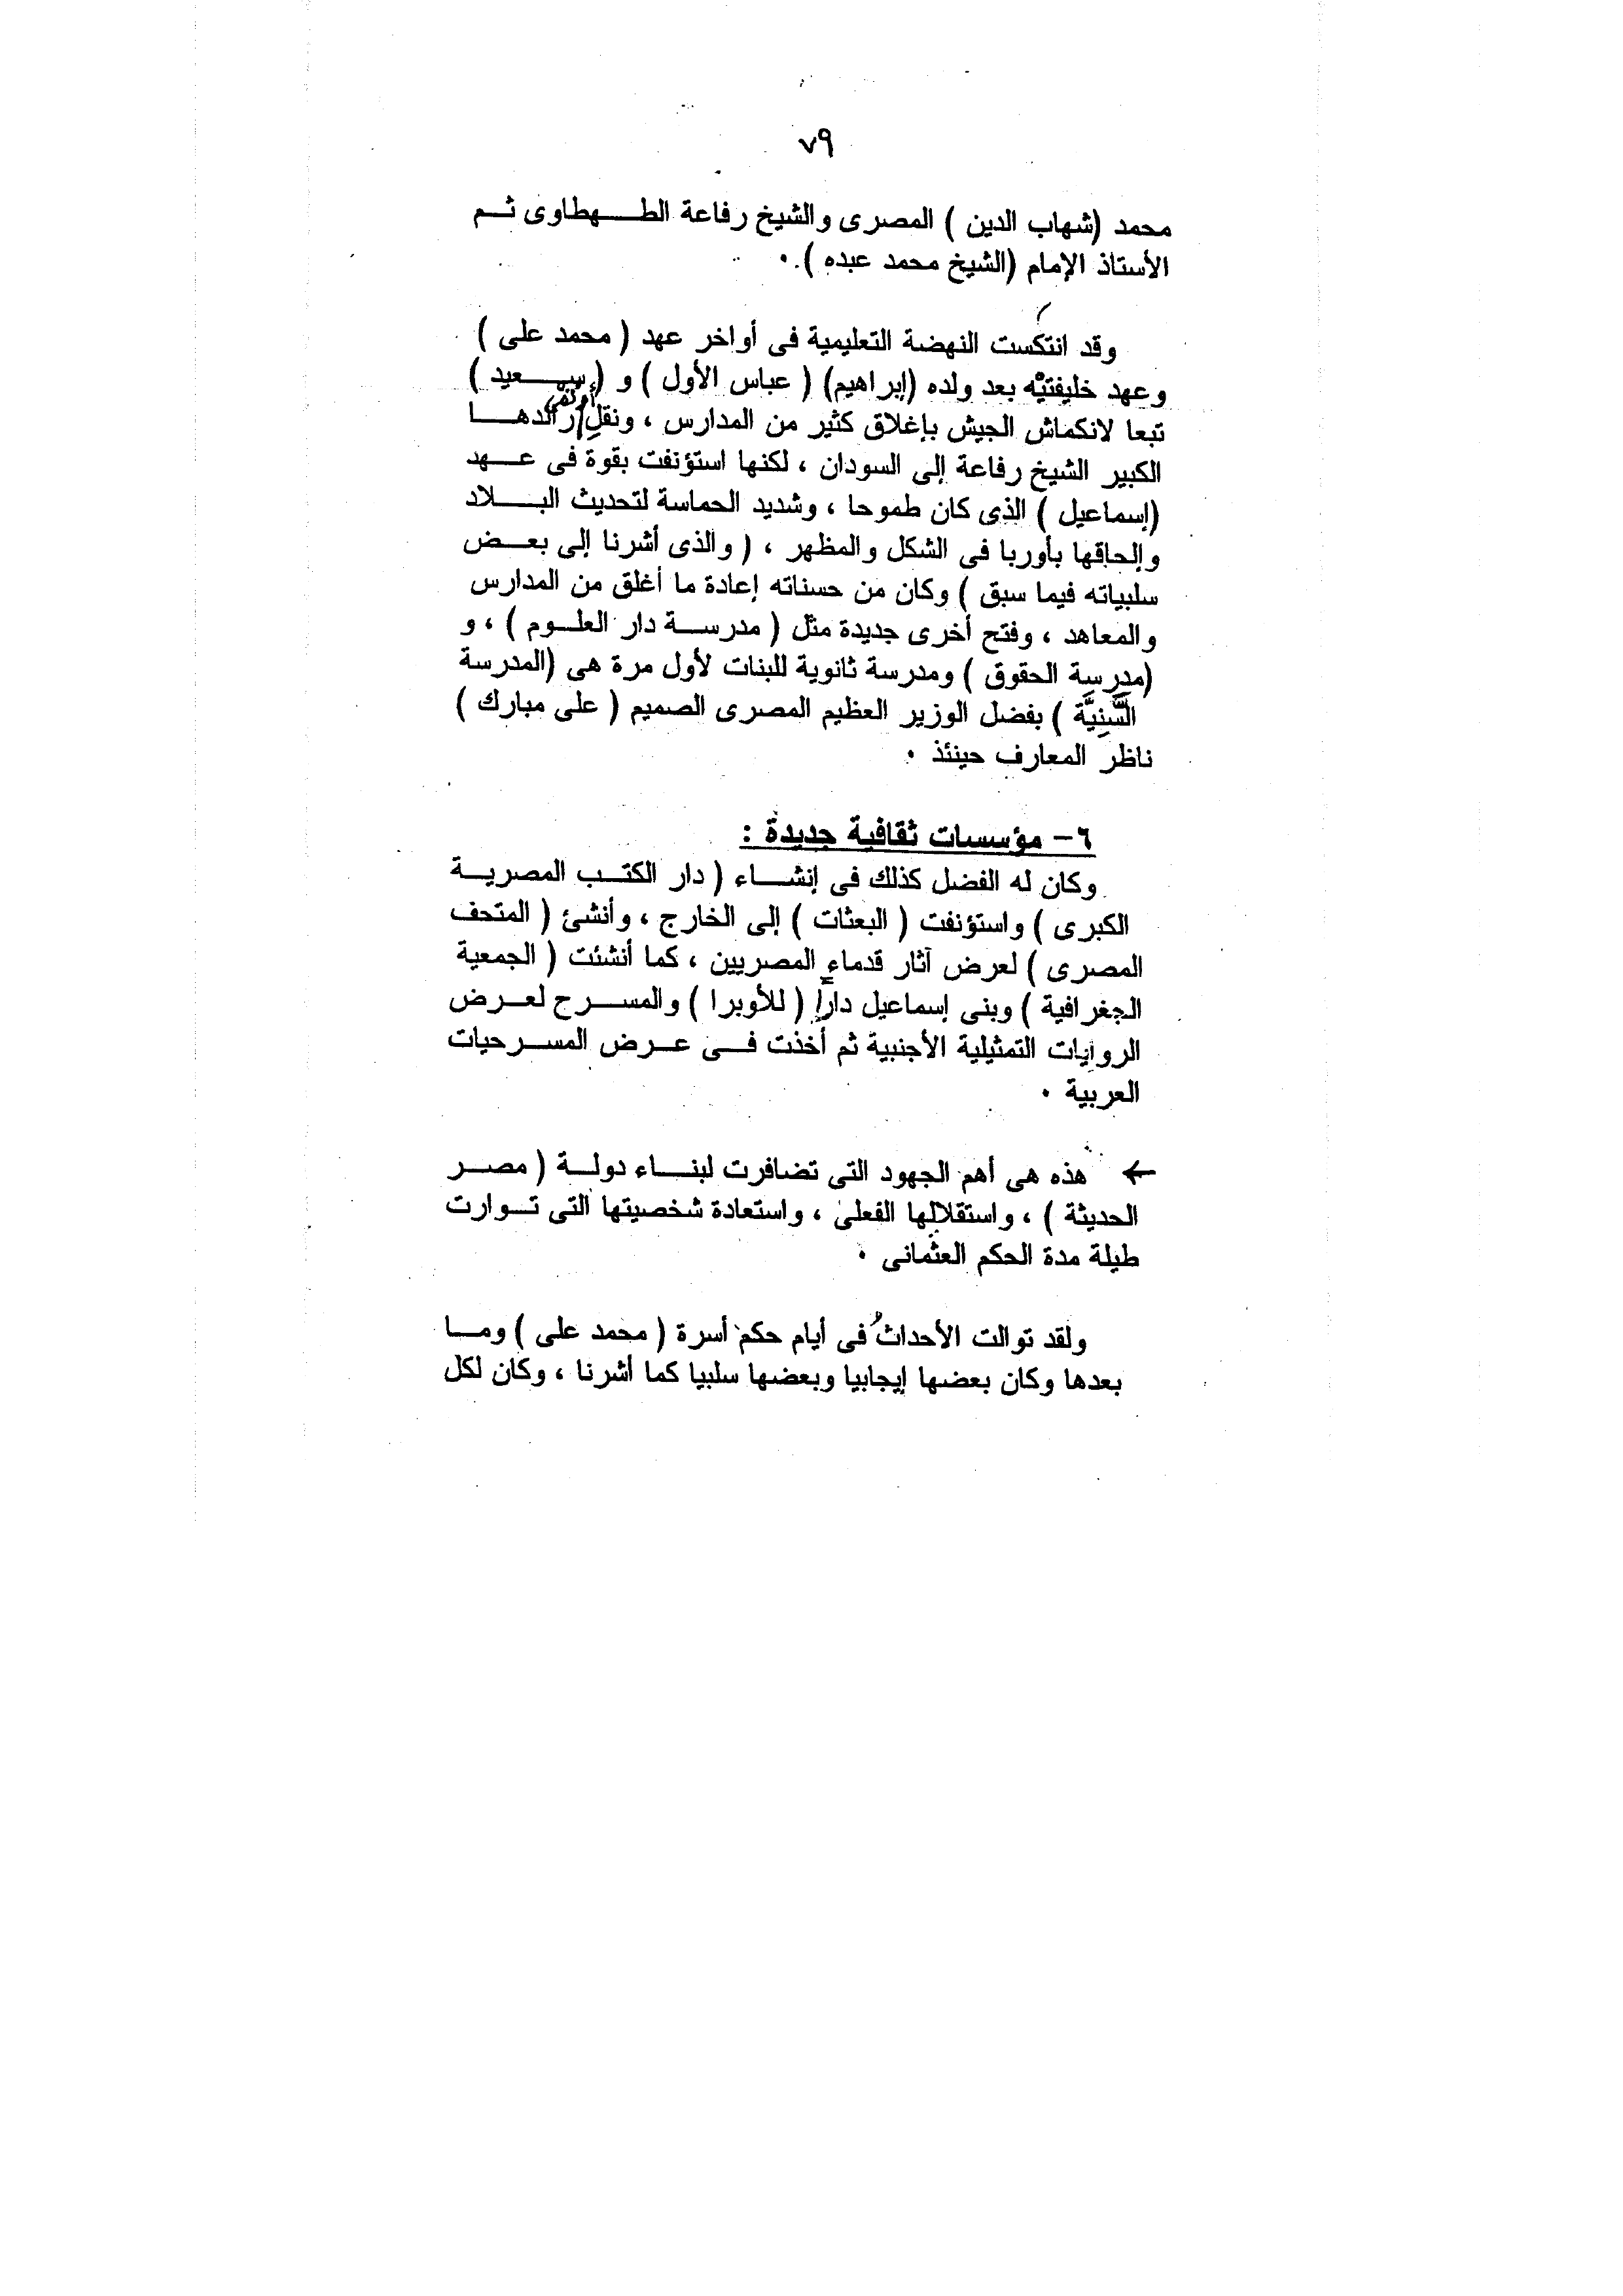 ٧٩
محمد (شهاب الدين ) المصرى والشيخ رفاعة الطهطاوى ثم
الأستاذ الإمام (الشيخ محمد عبده ) .
وقد انتكست النهضة التعليمية فى أواخر عهد ( محمد على )
وعهد خليفتيْه بعد ولده (إبراهيم) ( عباس الأول ) و ( سعيد )
تبعا لانكماش الجيش بإغلاق كثير من المدارس ، ونقل أو نفى رائدها
الكبير الشيخ رفاعة إلى السودان ، لكنها استؤنفت بقوة فى عهد
(إسماعيل ) الذى كان طموحا ، وشديد الحماسة لتحديث البلاد
وإلحاقها بأوربا فى الشكل والمظهر ، ( والذى أشرنا إلى بعض
سلبياته فيما سبق ) وكان من حسناته إعادة ما أغلق من المدارس
والمعاهد ، وفتح أخرى جديدة مثل ( مدرسة دار العلوم ) ، و
(مدرسة الحقوق ) ومدرسة ثانوية للبنات لأول مرة هى (المدرسة
السَّنِيَّة ) بفضل الوزير العظيم المصرى الصميم ( على مبارك )
ناظر المعارف حينئذ .
٦- مؤسسات ثقافية جديدة :
وكان له الفضل كذلك فى إنشاء ( دار الكتب المصرية
الكبرى ) واستؤنفت ( البعثات ) إلى الخارج ، وأنشئ ( المتحف
المصرى ) لعرض آثار قدماء المصريين ، كما أنشئت ( الجمعية
الجغرافية ) وبنى إسماعيل داراً ( للأوبرا ) والمسرح لعرض
الروايات التمثيلية الأجنبية ثم أخذت فى عرض المسرحيات
العربية .
← هذه هى أهم الجهود التى تضافرت لبناء دولة ( مصر
الحديثة ) ، واستقلالها الفعلى ، واستعادة شخصيتها التى توارت
طيلة مدة الحكم العثمانى .
ولقد توالت الأحداثُ فى أيام حكم أسرة ( محمد على ) وما
بعدها وكان بعضها إيجابيا وبعضها سلبيا كما أشرنا ، وكان لكل